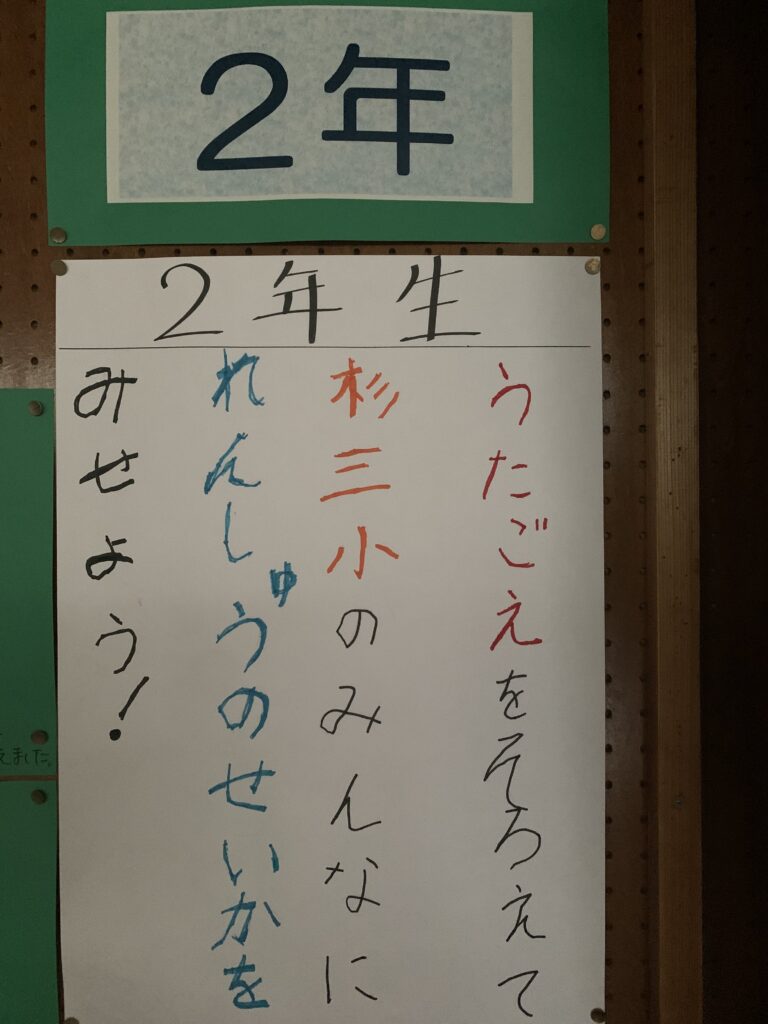 ２年
２年生
うたごえをそろえて
杉三小のみんなに
れんしゅうのせいかを
みせよう！
えました。